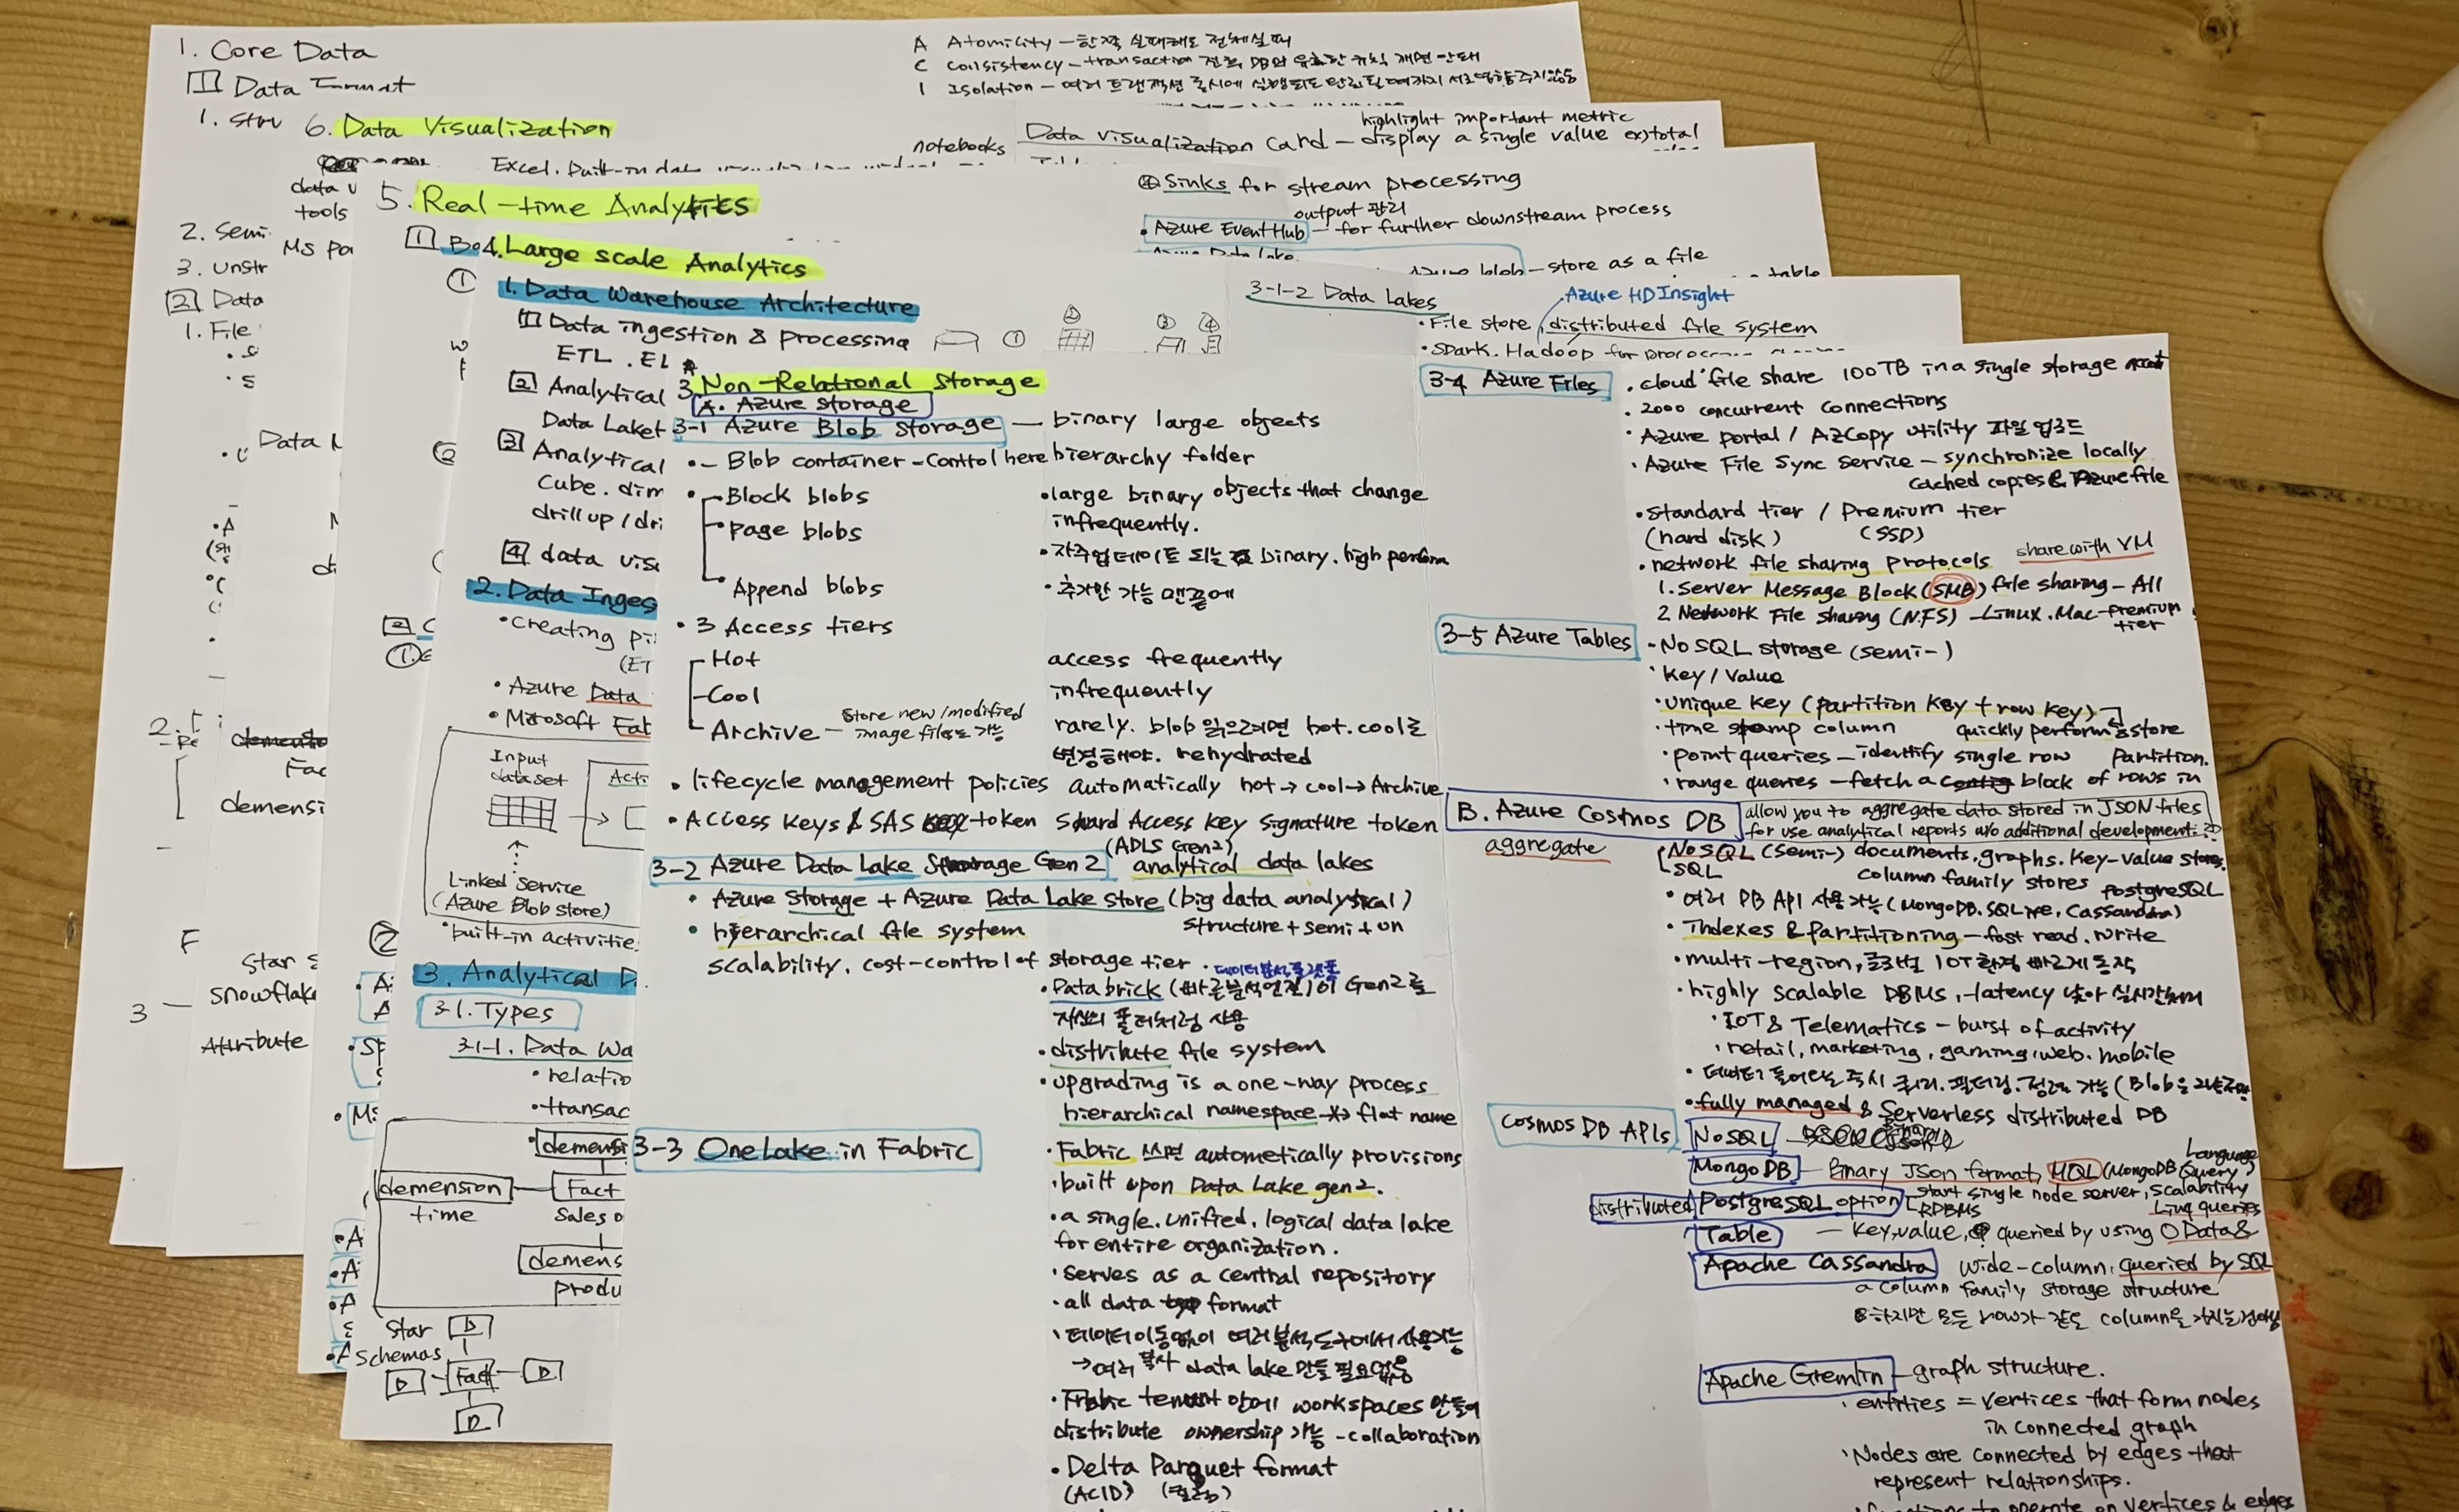 1. Core Data
① Data Format
1. Stru
2. Semi
3. Unstr
② Data
1. File
A Atomicity – 한쪽 실패해도 전체실패
C Consistency – transaction
I Isolation – 여러 트랜잭션 동시에 실행되도
6. Data Visualization
Excel. built-in data
data v
tools
MS Po
notebooks
highlight important metric
Data visualization card – display a single value ex) total
5. Real-time Analytics
④ Sinks for stream processing
output 관리
• Azure EventHub – for further downstream process
Azure Data Lake
Azure blob – store as a file
table
4. Large scale Analytics
1. Data Warehouse Architecture
① Data ingestion & processing
ETL . EL
② Analytical
Data Lake
③ Analytical
Cube. dim
drill up / dri
④ data vis
2. Data Inges
• Creating pi
(ET
• Azure Data
• Microsoft Fab
Input
dataset
Acti
Linked service
(Azure Blob store)
• built-in activitie
3. Analytical D
3-1. Types
3-1-1. Data Wa
• relatio
• transac
demensi
demension
time
Fact
Sales o
demens
produ
Star
Schemas
D
D
Fact
D
D
3-1-2 Data Lakes
Azure HDInsight
• File store, distributed file system
• Spark. Hadoop for
Data
demensi
Star s
snowflake
Attribute
3. Non-Relational Storage
A. Azure storage
3-1 Azure Blob Storage — binary large objects
•– Blob container – Control here hierarchy folder
• Block blobs
• large binary objects that change
infrequently.
• page blobs
• 자주업데이트 되는 binary. high perform
• Append blobs
• 추가만 가능 맨끝에
• 3 Access tiers
Hot access frequently
Cool infrequently
Archive – store new/modified
image files도 가능
rarely. blob 읽으려면 hot. cool로
변경해야. rehydrated
• lifecycle management policies automatically hot → cool → Archive
• Access Keys & SAS token Shard Access Key Signature token
(ADLS Gen2)
3-2 Azure Data Lake Storage Gen 2 analytical data lakes
• Azure Storage + Azure Data Lake store (big data analytical)
• hierarchical file system structure + semi + un
scalability. cost-control of storage tier
데이터분석플랫폼
• Databrick (빠른분석엔진)이 Gen2를
자신의 폴더처럼 사용
• distribute file system
• upgrading is a one-way process
hierarchical namespace flat name
3-3 OneLake in Fabric
• Fabric 쓰면 autometically provisions
• built upon Data Lake gen2.
• a single. unified. logical data lake
for entire organization.
• serves as a central repository
• all data format
• 데이터이동없이 여러 분석도구에서 사용가능
→ 여러 복사 data lake 만들 필요없음
• Fabric tenant 안에 workspaces 만들어
distribute ownership 가능 – collaboration
• Delta Parquet format
(ACID) (컬럼)
3-4 Azure Files
• cloud file share 100TB in a single storage
• 2000 concurrent connections
• Azure portal / AZCopy utility 파일 업로드
• Azure File Sync Service – synchronize locally
cached copies & Azure file
• Standard tier / Premium tier
(hard disk) (SSD)
share with VM
• network file sharing protocols
1. Server Message Block (SMB) file sharing – All
2 Network File sharing (NFS) – Linux. Mac – Premium
tier
3-5 Azure Tables
• NoSQL storage (semi-)
• Key / Value
• unique key (partition key + row key)
• time stamp column quickly perform & store
• point queries – identify single row partition.
• range queries – fetch a contig block of rows in
B. Azure Costmos DB
allow you to aggregate data stored in JSON files
for use analytical reports w/o additional development.
aggregate
NoSQL (semi-) documents. graphs. Key-value stores.
SQL column family stores postgreSQL
• 여러 DB API 사용가능 (MongoDB. SQL Cassandra)
• Indexes & partitioning – fast read. write
• multi-region, 글로벌 IOT환경 빠르게 동작
• highly scalable DBMS, latency 낮아
• IOT & Telematics – burst of activity
• retail, marketing, gaming. web. mobile
• 데이터 들어오는 즉시 쿼리. 필터링. 정렬 가능 (Blob은
• fully managed & Serverless distributed DB
Cosmos DB APIs
NoSQL
MongoDB – Binary JSon format, MQL (MongoDB Query Language)
distributed PostgreSQL option start single node server, scalability
RDBMS
Linq queries
Table – Key,value, queried by using OData &
Apache Cassandra wide-column, queried by SQL
a column family storage structure
하지만 모든 row가 같은 column을 가지는건아님
Apache Gremlin – graph structure.
• entities = vertices that form nodes
in connected graph
• Nodes are connected by edges that
represent relationships.
• functions to operate on vertices & edges